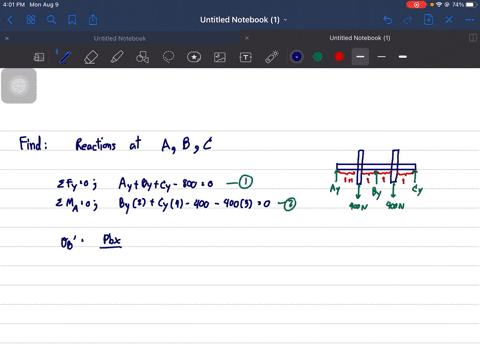 4:01 PM Mon Aug 9
74%
Untitled Notebook (1)
Untitled Notebook
Untitled Notebook (1)
Find: Reactions at A, B, C
ΣFy=0; Ay+By+Cy-800=0 — 1
ΣMA=0; By(2)+Cy(4)-400-400(3)=0 — 2
Pbx
1m 1 1 1
Ay By Cy
400N 400N